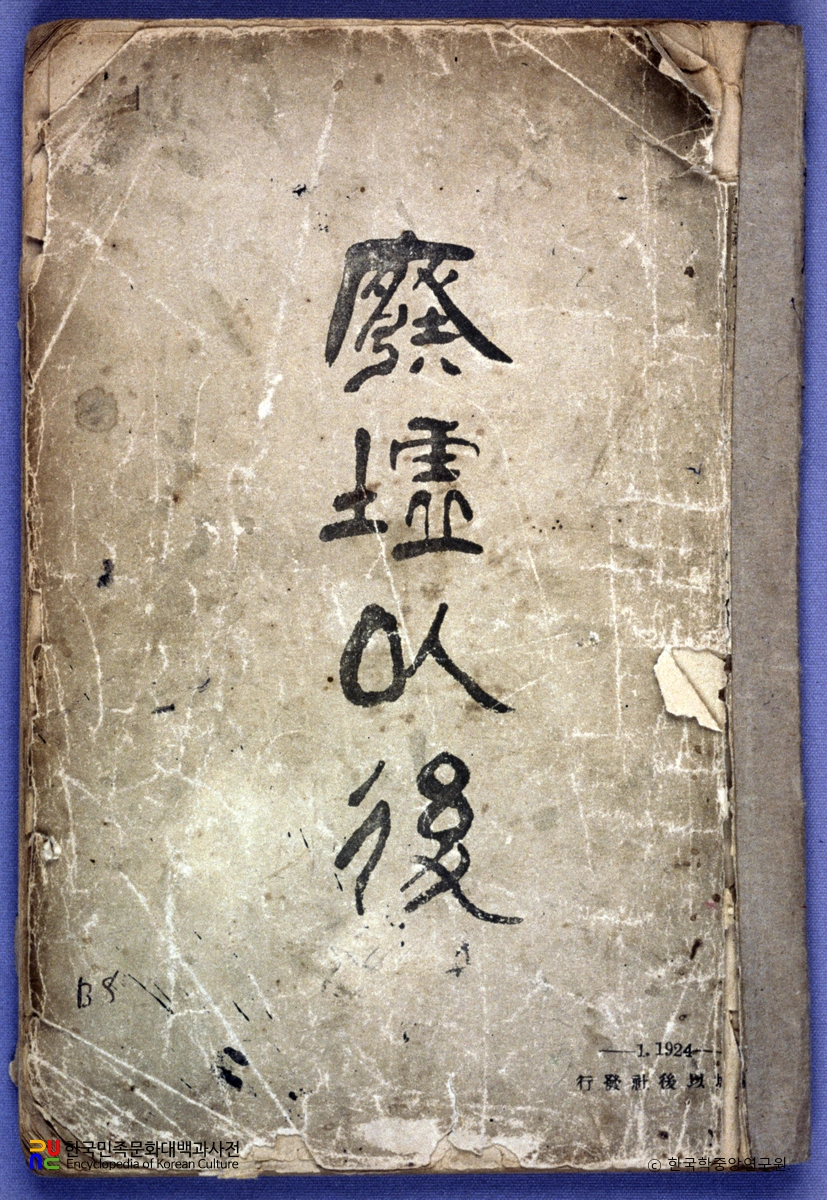 廢墟以後
B8
—1.1924—
行發社後以墟
한국민족문화대백과사전
Encyclopedia of Korean Culture
© 한국학중앙연구원